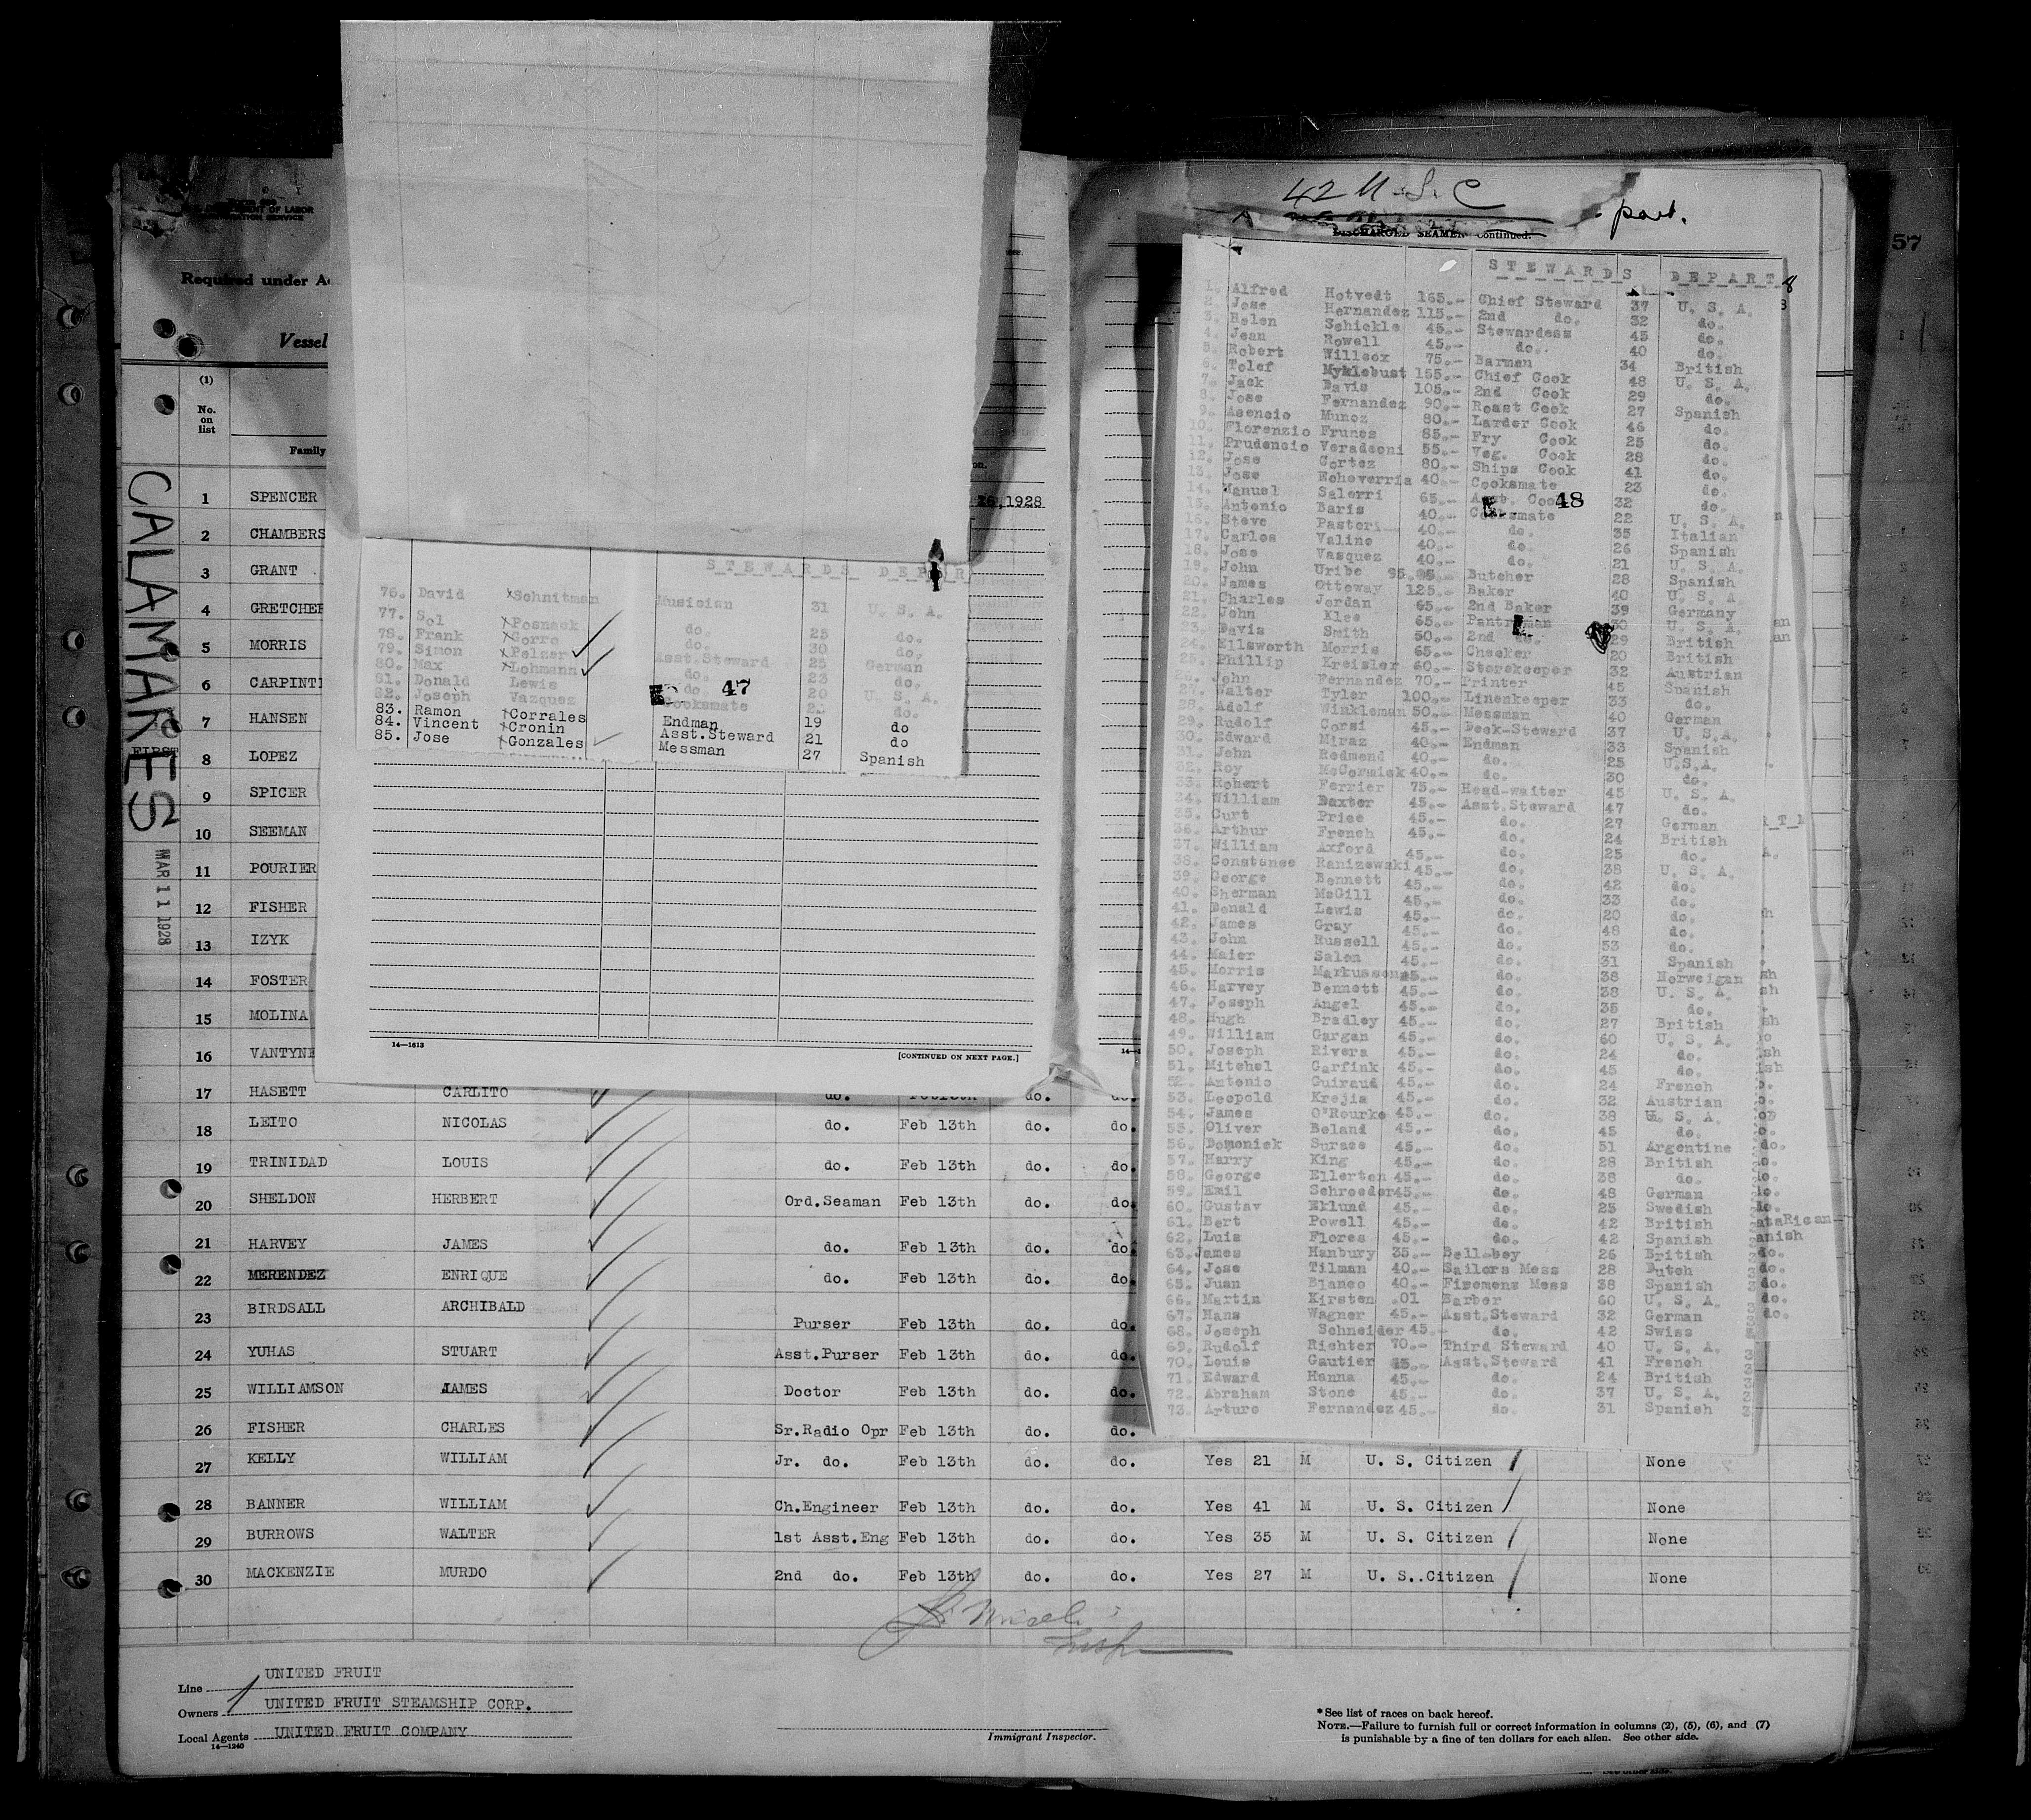 DEPARTMENT OF LABOR
Required under
Vessel
(1)
No. on list
Family
CALAMARES
FIRST
MAR 11 1928
1 SPENCER 26,1928
2 CHAMBERS
3 GRANT
4 GRETCHER
5 MORRIS
6 CARPINTI
7 HANSEN
8 LOPEZ
9 SPICER
10 SEEMAN
11 POURIER
12 FISHER
13 IZYK
14 FOSTER
15 MOLINA
16 VANTYNE
17 HASETT CARLITO do. do.
18 LEITO NICOLAS do. Feb 13th do. do.
19 TRINIDAD LOUIS do. Feb 13th do. do.
20 SHELDON HERBERT Ord.Seaman Feb 13th do. do.
21 HARVEY JAMES do. Feb 13th do. do.
22 MERENDEZ ENRIQUE do. Feb 13th do. do.
23 BIRDSALL ARCHIBALD Purser Feb 13th do. do.
24 YUHAS STUART Asst.Purser Feb 13th do. do.
25 WILLIAMSON JAMES Doctor Feb 13th do. do.
26 FISHER CHARLES Sr.Radio Opr Feb 13th do. do.
27 KELLY WILLIAM Jr. do. Feb 13th do. do. Yes 21 M U. S. Citizen None
28 BANNER WILLIAM Ch.Engineer Feb 13th do. do. Yes 41 M U. S. Citizen None
29 BURROWS WALTER 1st Asst.Eng Feb 13th do. do. Yes 35 M U. S. Citizen None
30 MACKENZIE MURDO 2nd do. Feb 13th do. do. Yes 27 M U. S..Citizen None
Line UNITED FRUIT
Owners UNITED FRUIT STEAMSHIP CORP.
Local Agents UNITED FRUIT COMPANY
14—1240
Immigrant Inspector.
*See list of races on back hereof.
NOTE.—Failure to furnish full or correct information in columns (2), (5), (6), and (7)
is punishable by a fine of ten dollars for each alien. See other side.
STEWARDS DEPAR
75. David Schnitman Musician 31 U. S. A.
77. Sol Posnack do. 25 do.
78. Frank Gorro do. 30 do.
79. Simon Pelzer Asst.Steward 25 German
80. Max Lohmann do. 23 do.
81. Donald Lewis do. 20 U. S. A.
82. Joseph Vazquez Cooksmate do.
47
83. Ramon Corrales Endman 19 do
84. Vincent Cronin Asst.Steward 21 do
85. Jose Gonzales Messman 27 Spanish
14—1613
[CONTINUED ON NEXT PAGE.]
42 U.S.C
part.
DISCHARGED SEAMEN Continued.
57
STEWARDS DEPART
1. Alfred Hotvedt 165.- Chief Steward 37 U. S. A.
2. Jose Hernandez 115.- 2nd do. 32 do.
3. Helen Schickle 45.- Stewardess 45 do.
4. Jean Rowell 45.- do. 40 do.
5. Robert Willcox 75.- Barman 34 British
6. Tolef Myklebust 155.- Chief Cook 48 U. S. A.
7. Jack Davis 105.- 2nd Cook 29 do.
8. Jose Fernandez 90.- Roast Cook 27 Spanish
9. Asencio Munoz 80.- Larder Cook 46 do.
10. Florenzio Frunes 85.- Fry Cook 25 do.
11. Prudencio Veradeoni 55.- Veg. Cook 28 do.
12. Jose Cortez 80.- Ships Cook 41 do.
13. Jose Echeverria 40.- Cooksmate 23 do.
14. Manuel Salerri 65.- Asst. Cook 32 do.
48
15. Antonio Baris 40.- Cooksmate 22 U. S. A.
16. Steve Pastori 40.- do. 35 Italian
17. Carlos Valine 40.- do. 26 Spanish
18. Jose Vasquez 40.- do. 21 U. S. A.
19. John Uribe 95. Butcher 28 Spanish
20. James Ottoway 125.- Baker 40 U. S. A.
21. Charles Jordan 65.- 2nd Baker 39 Germany
22. John Klee 65.- Pantryman 30 U. S. A.
23. Davis Smith 50.- 2nd do. 29 British
24. Ellsworth Morris 65.- Checker 20 British
25. Phillip Kreisler 60.- Storekeeper 32 Austrian
26. John Fernandez 70.- Printer 45 Spanish
27. Walter Tyler 100.- Linenkeeper 33 do.
28. Adolf Winkleman 50.- Messman 40 German
29. Rudolf Corsi 45.- Deck-Steward 37 U. S.A.
30. Edward Miraz 40.- Endman 33 Spanish
31. John Redmond 40.- do. 25 U.S.A.
32. Roy McCormick 40.- do. 30 do.
33. Robert Ferrier 75.- Head-waiter 45 U. S. A.
34. William Baxter 45.- Asst.Steward 47 do.
35. Curt Price 45.- do. 27 German
36. Arthur French 45.- do. 24 British
37. William Axford 45.- do. 25 do.
38. Constance Ranizewski 45.- do. 38 U. S. A.
39. George Bennett 45.- do. 42 do.
40. Sherman McGill 45.- do. 33 do.
41. Donald Lewis 45.- do. 20 do.
42. James Gray 45.- do. 48 do.
43. John Russell 45.- do. 53 do.
44. Maier Salon 45.- do. 31 Spanish
45. Morris Markussen 45.- do. 38 Norweigan
46. Harvey Bennett 45.- do. 38 U. S. A.
47. Joseph Angel 45.- do. 35 do.
48. Hugh Bradley 45.- do. 27 British
49. William Gargan 45.- do. 60 U. S. A.
50. Joseph Rivera 45.- do. 24 do.
51. Mitchel Garfink 45.- do. 45 do.
52. Antonio Guiraud 45.- do. 24 French
53. Leopold Krejia 45.- do. 32 Austrian
54. James O'Rourke 45.- do. 38 U. S. A.
55. Oliver Beland 45.- do. 45 do.
56. Domenick Surace 45.- do. 51 Argentine
57. Harry King 45.- do. 28 British
58. George Ellerton 45.- do. 38 do.
59. Emil Schroeder 45.- do. 48 German
60. Gustav Eklund 45.- do. 25 Swedish
61. Bert Powell 45.- do. 42 British
62. Luis Flores 45.- do. 42 Spanish
63. James Hanbury 35.- Bell-boy 26 British
64. Jose Tilman 40.- Sailors Mess 28 Dutch
65. Juan Blanco 40.- Firemens Mess 38 Spanish
66. Martin Kirsten .01 Barber 60 U. S. A.
67. Hans Wagner 45.- Asst.Steward 32 German
68. Joseph Schneider 45.- do. 42 Swiss
69. Rudolf Richter 70.- Third Steward 40 U. S. A.
70. Louis Gautier 45.- Asst.Steward 41 French
71. Edward Hanna 45.- do. 24 British
72. Abraham Stone 45.- do. 37 U. S. A.
73. Arturo Fernandez 45.- do. 31 Spanish